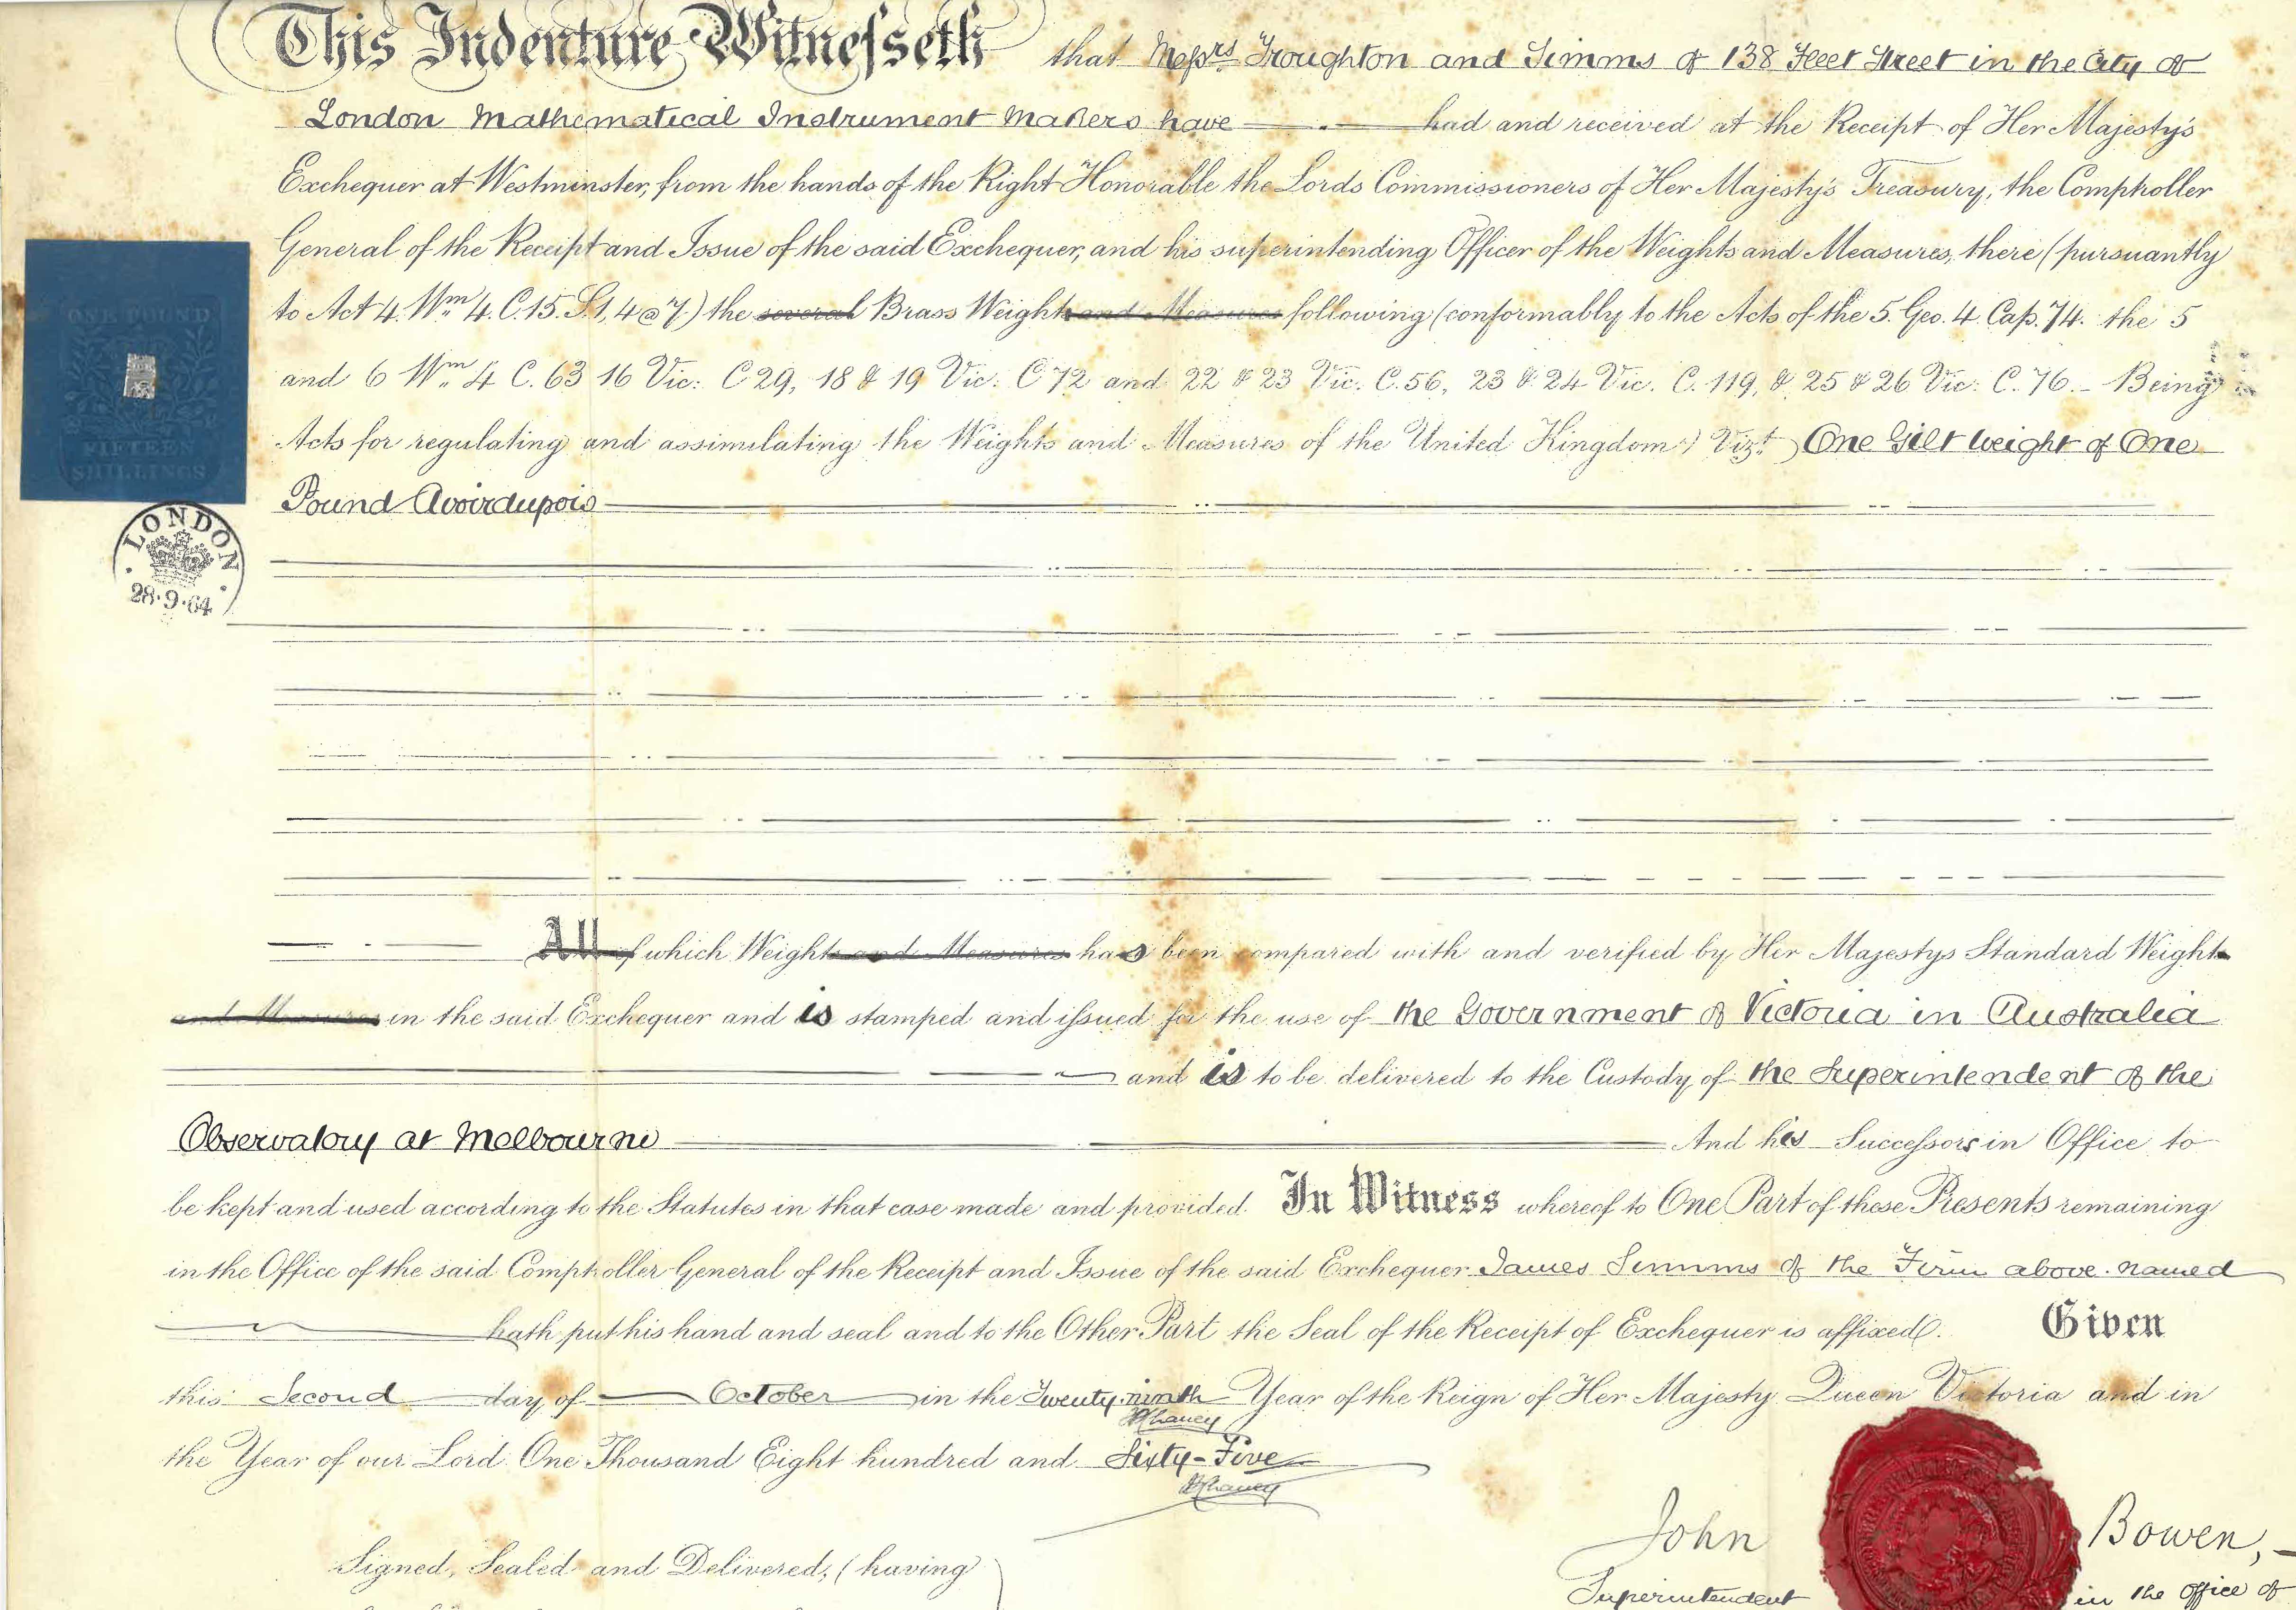 This Indenture Witnesseth that Messrs Troughton and Simms of 138 Fleet Street in the City of
London Mathematical Instrument Makers have had and received at the Receipt of Her Majesty's
Exchequer at Westminster, from the hands of the Right Honorable the Lords Commissioners of Her Majesty's Treasury, the Comptroller
General of the Receipt and Issue of the said Exchequer, and his superintending Officer of the Weights and Measures, there (pursuantly
to Act 4. Wm 4. C. 15. S. 1, 4 @ 7.) the several Brass Weights and Measures following (conformably to the Acts of the 5. Geo. 4. Cap. 74. the 5
and 6 Wm 4 C. 63 16 Vic: C 29, 18 & 19 Vic: C 72 and 22 & 23 Vic. C. 56, 23 & 24 Vic. C. 119, & 25 & 26 Vic: C. 76. - Being
Acts for regulating and assimilating the Weights and Measures of the United Kingdom) Vizt One Gilt Weight of One
Pound Avoirdupois
ONE POUND
FIFTEEN
SHILLINGS
LONDON
28·9·64
All of which Weights and Measures has been compared with and verified by Her Majestys Standard Weights
and Measures in the said Exchequer and is stamped and issued for the use of the Government of Victoria in Australia
and is to be delivered to the Custody of the Superintendent of the
Observatory at Melbourne And his Successors in Office to
be kept and used according to the Statutes in that case made and provided. In Witness whereof to One Part of these Presents remaining
in the Office of the said Comptroller General of the Receipt and Issue of the said Exchequer James Simms of the Firm above-named
hath put his hand and seal and to the Other Part the Seal of the Receipt of Exchequer is affixed. Given
this Second day of October in the Twenty-ninth Year of the Reign of Her Majesty Queen Victoria and in
HChaney
the Year of our Lord One Thousand Eight hundred and Sixty-Five
HChaney
John Bowen,
Signed, Sealed and Delivered, (having
Superintendent in the Office of